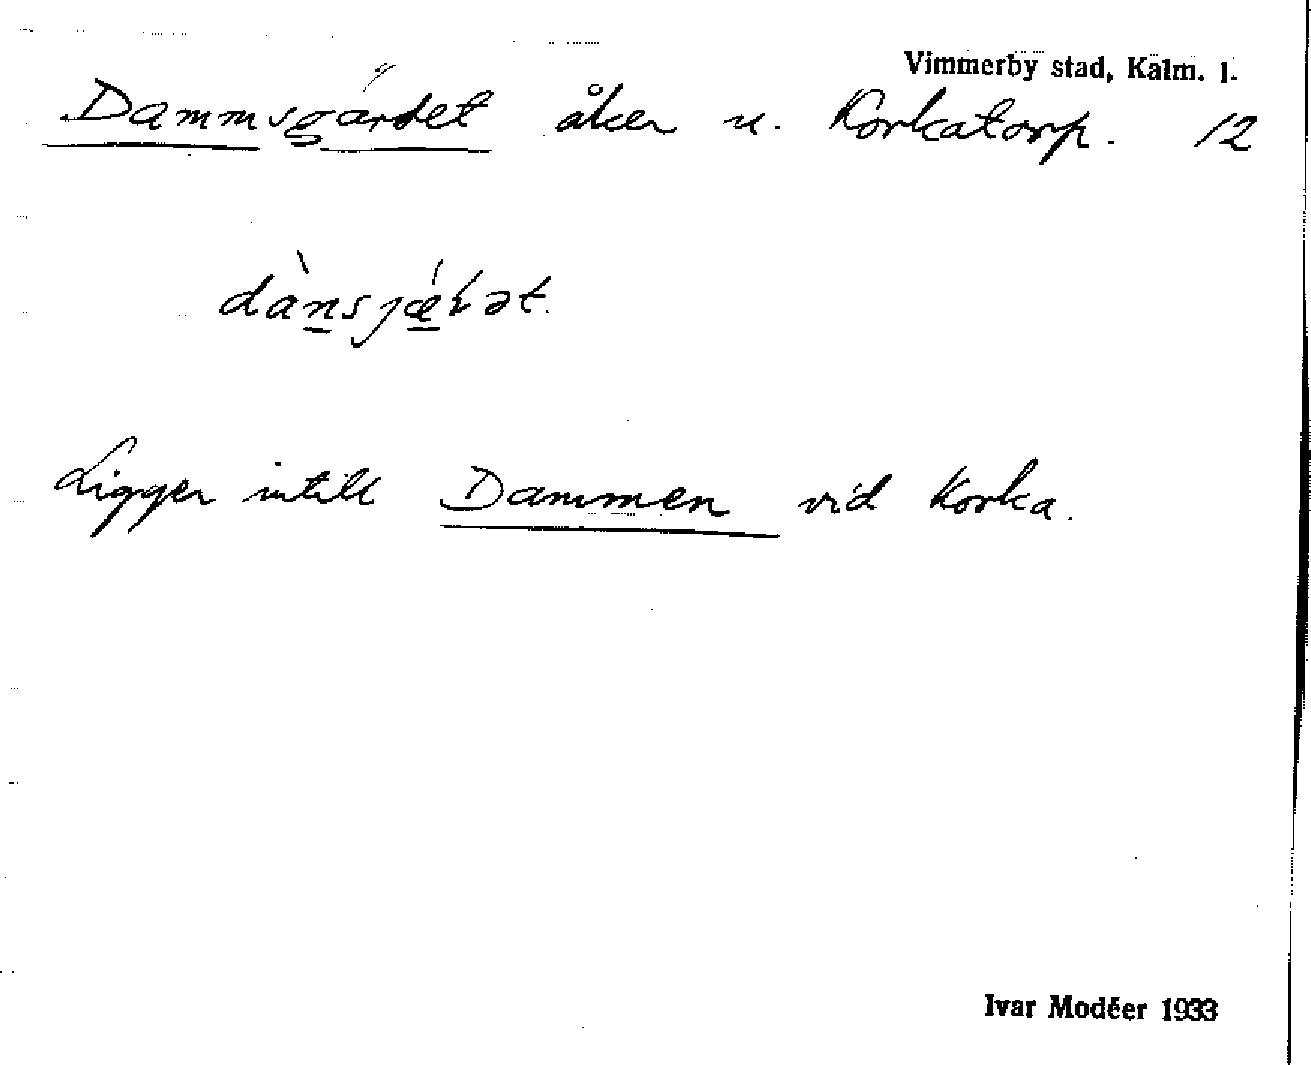 Vimmerby stad, Kalm. l.
Dammsgärdet åker u. Korkatorp. 12
dànsjǽɽət.
Ligger intill Dammen vid Korka.
Ivar Modéer 1933